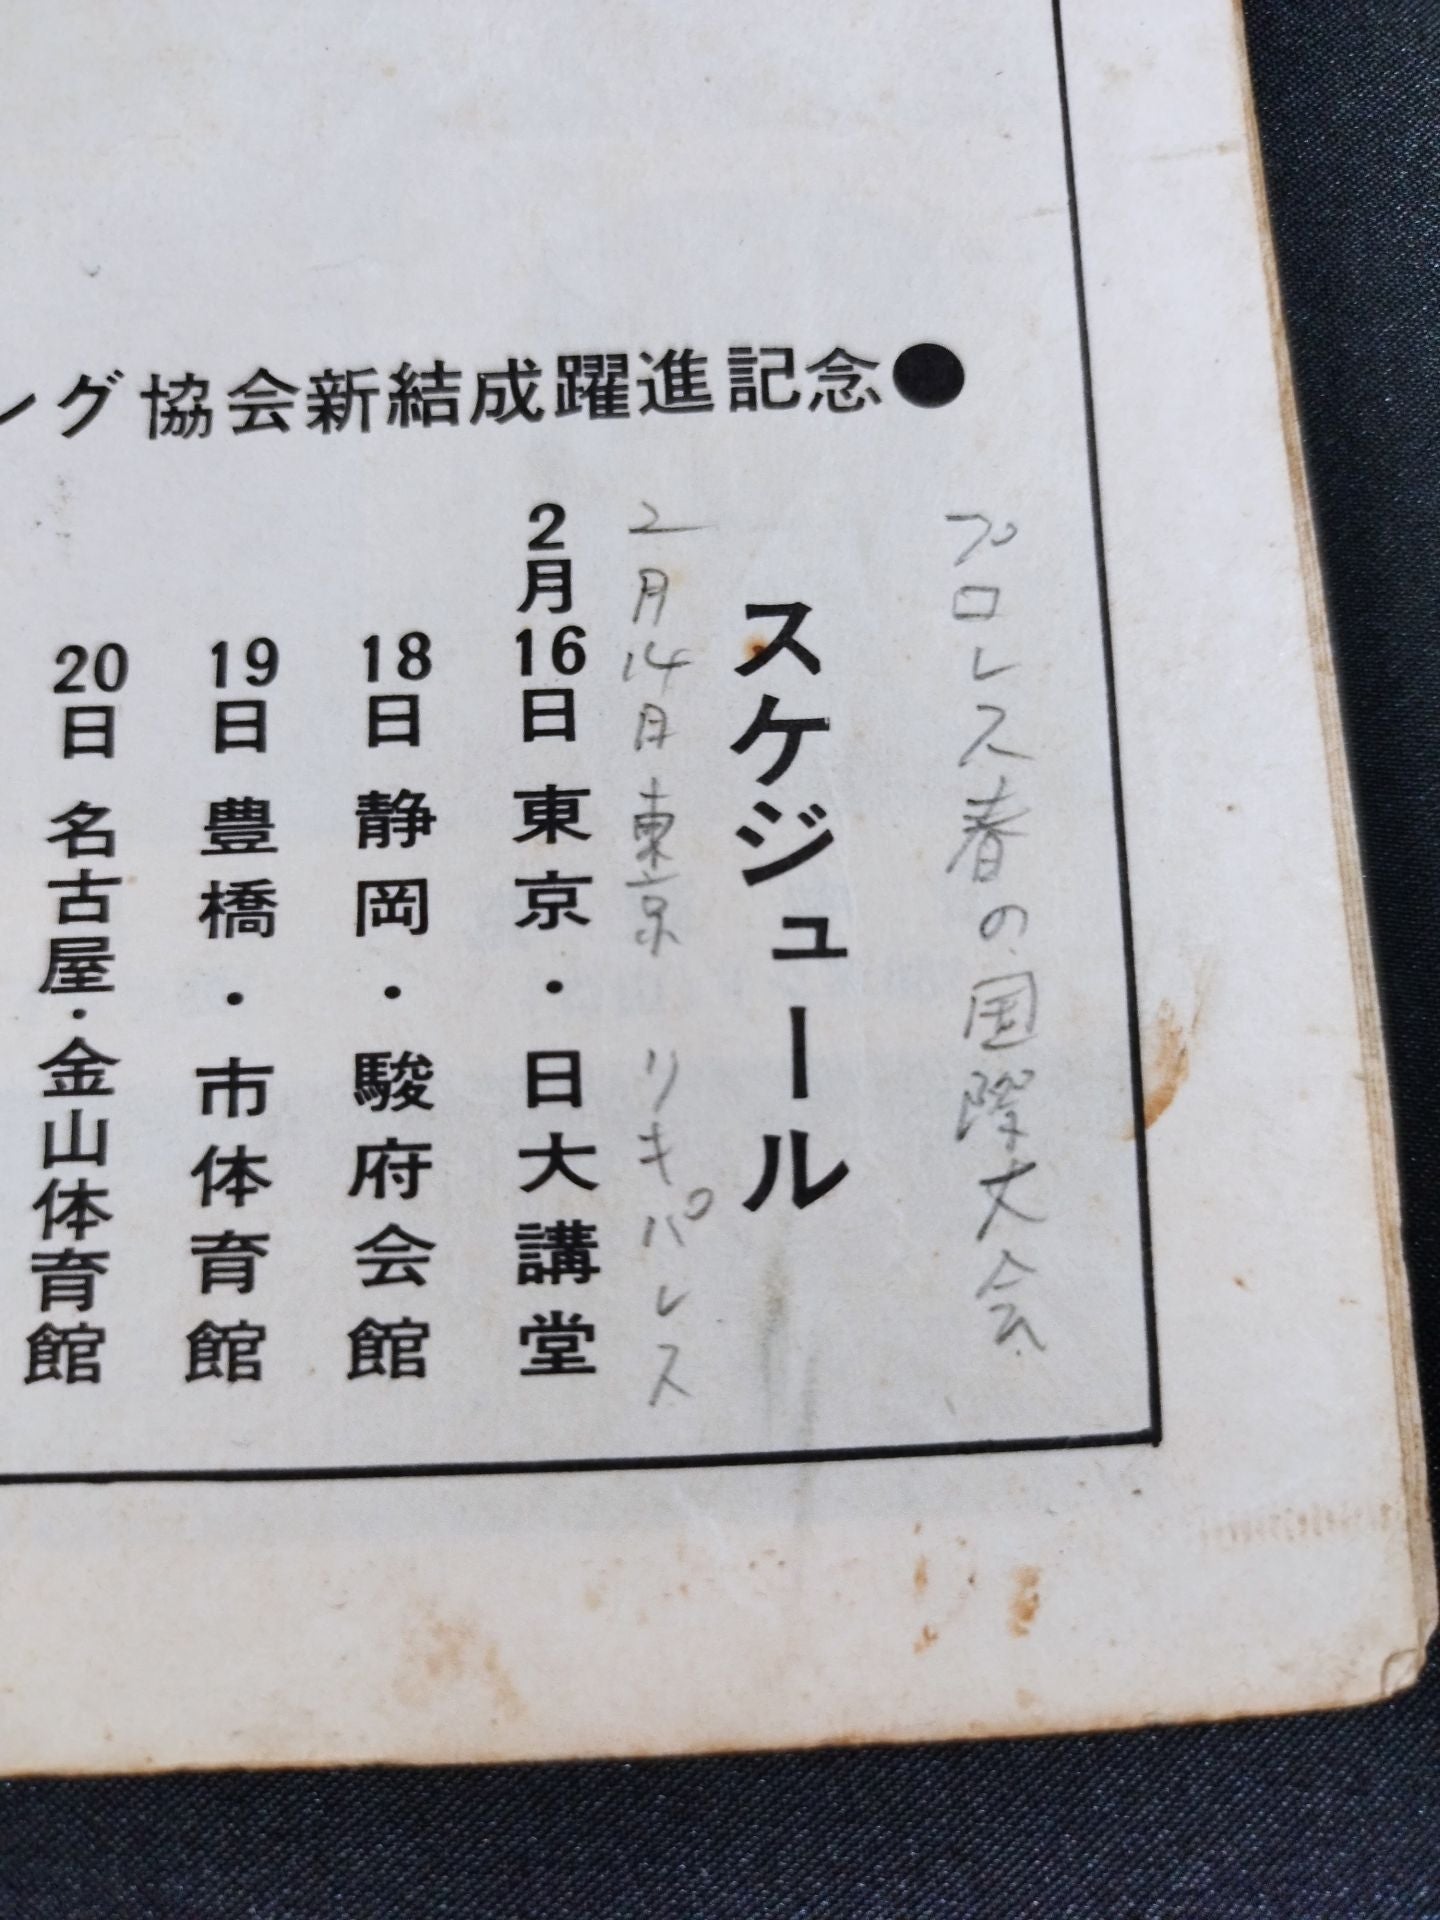 ング協会新結成躍進記念●
プロレス春の国際大会
スケジュール
2月14日東京 リキパレス
2月16日東京・日大講堂
18日静岡・駿府会館
19日豊橋・市体育館
20日名古屋・金山体育館